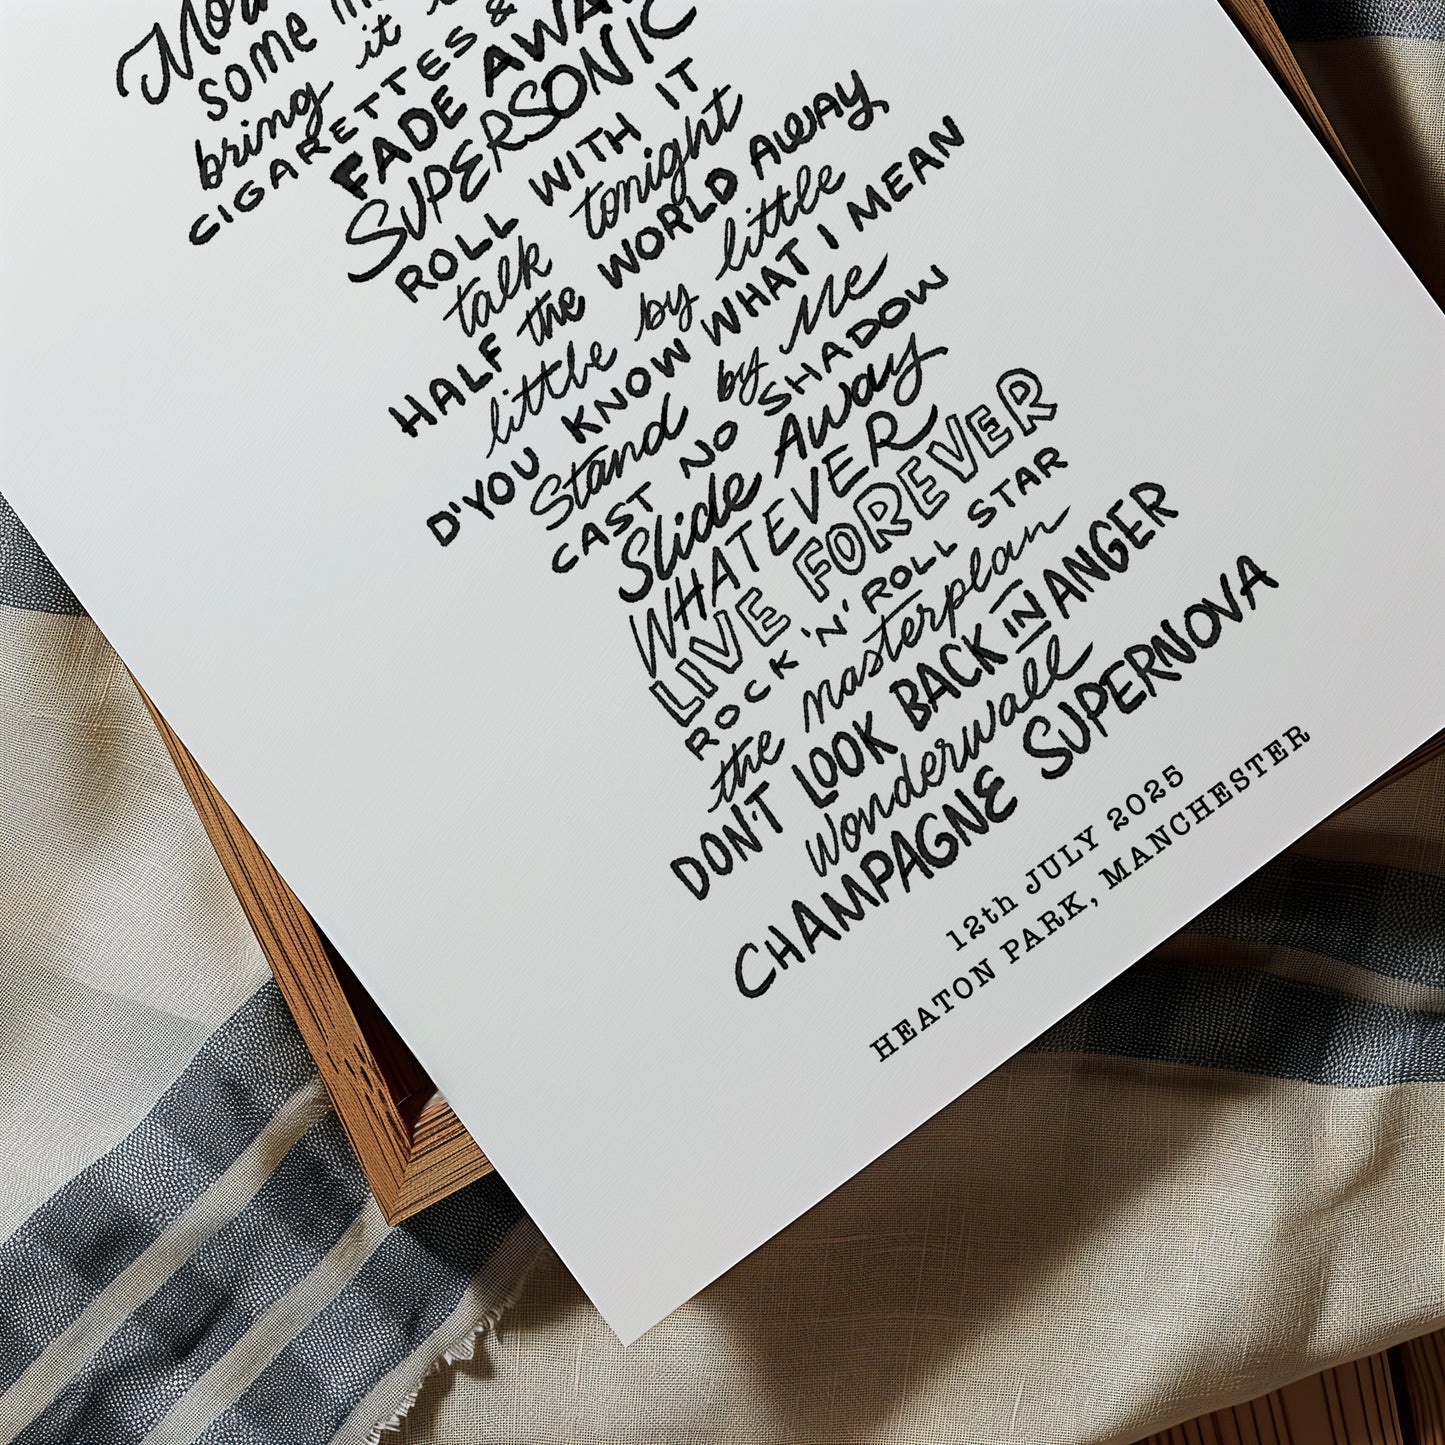 SOME
bring it
CIGARETTES &
FADE AWAY
SUPERSONIC
ROLL WITH IT
talk tonight
HALF the WORLD AWAY
little by little
D'YOU KNOW WHAT I MEAN
Stand by Me
CAST NO SHADOW
Slide Away
WHATEVER
LIVE FOREVER
ROCK 'N' ROLL STAR
the masterplan
DON'T LOOK BACK IN ANGER
Wonderwall
CHAMPAGNE SUPERNOVA
12th JULY 2025
HEATON PARK, MANCHESTER